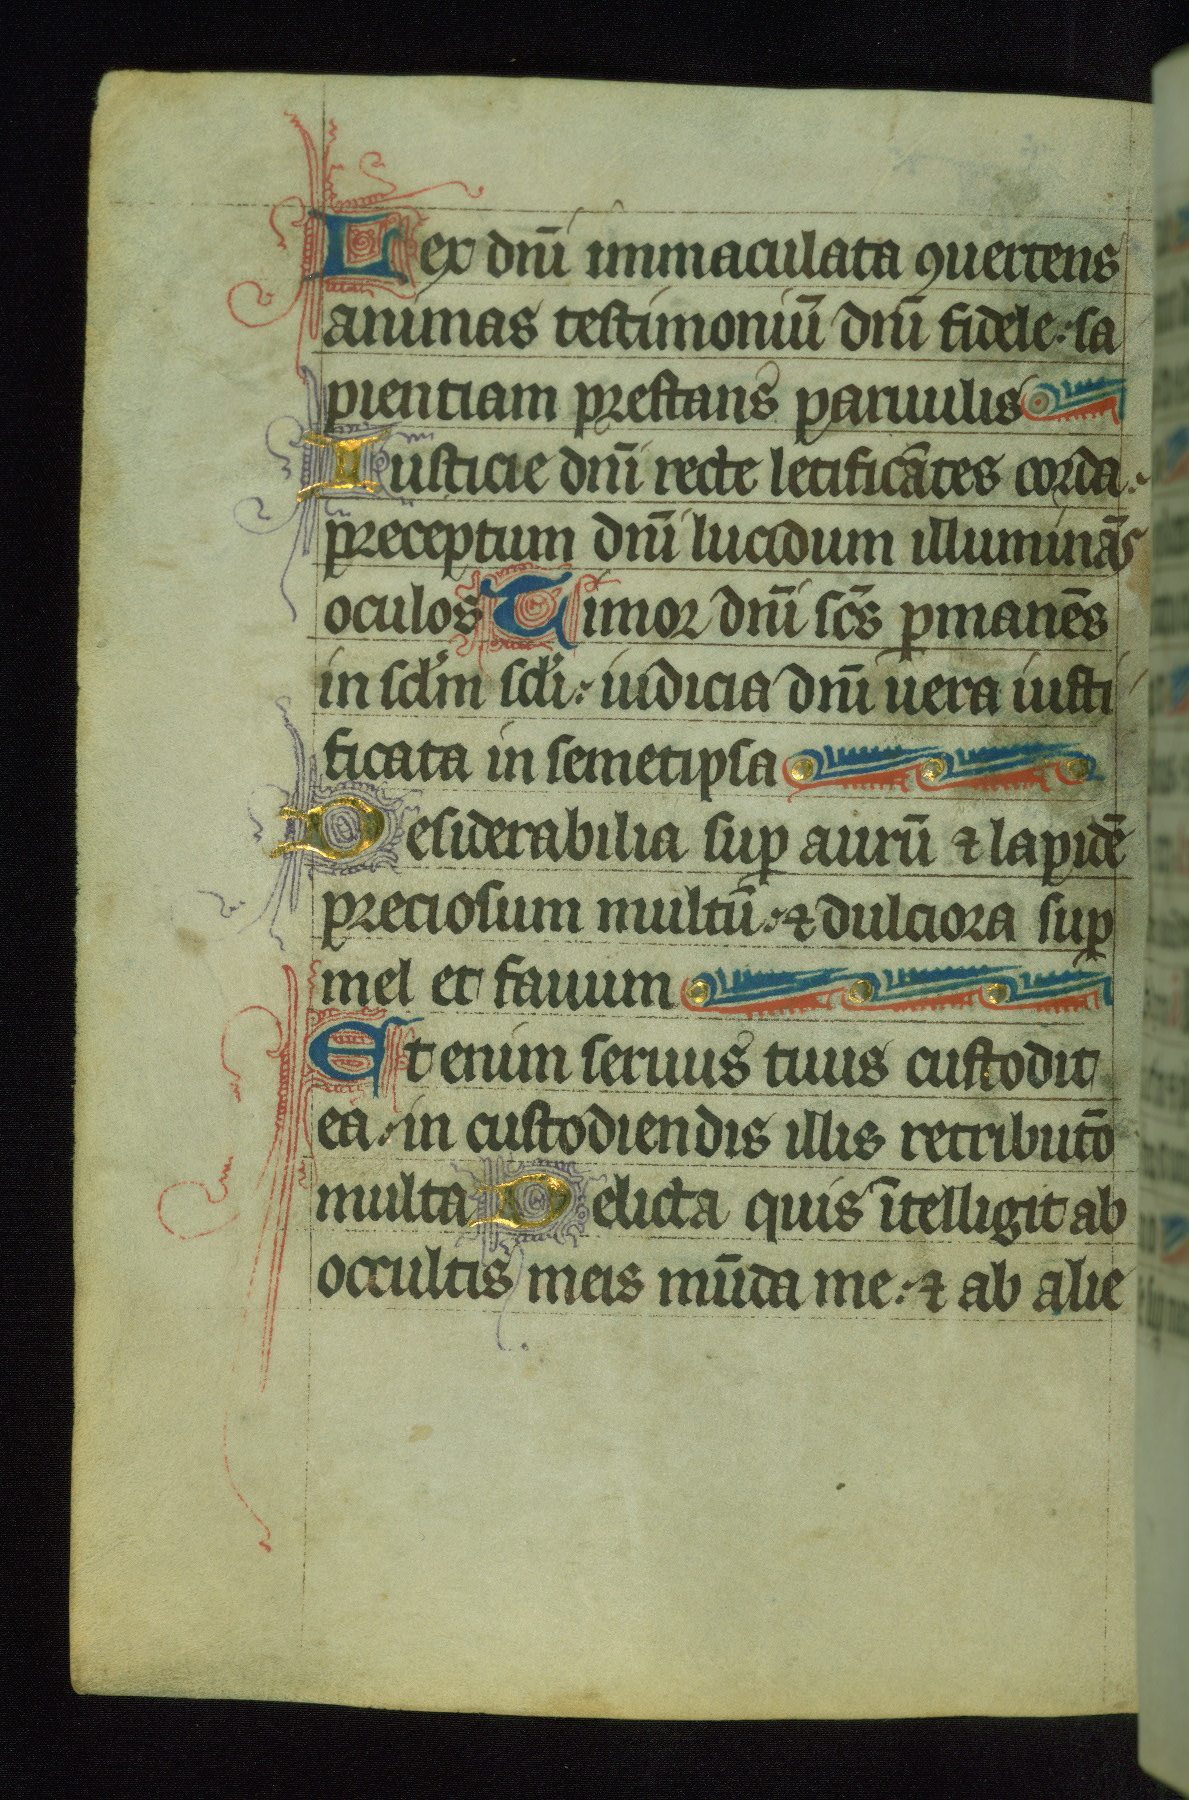 Lex dnī immaculata ꝯuertens
animas testimoniū dnī fidele· sa
pientiam prestans paruulis
Iusticie dnī recte letificātes corda·
preceptum dnī lucidum illuminās
oculos Timor dnī scs̄ ꝑmanēs
in scl̄m scl̄i· iudicia dnī uera iusti
ficata in semetipsa
Desiderabilia suꝑ aurū ⁊ lapidē
preciosum multū· ⁊ dulciora suꝑ
mel et fauum
Et enim seruus tuus custodit
ea· in custodiendis illis retributō
multa Delicta quis ītelligit ab
occultis meis mūda me· ⁊ ab alie